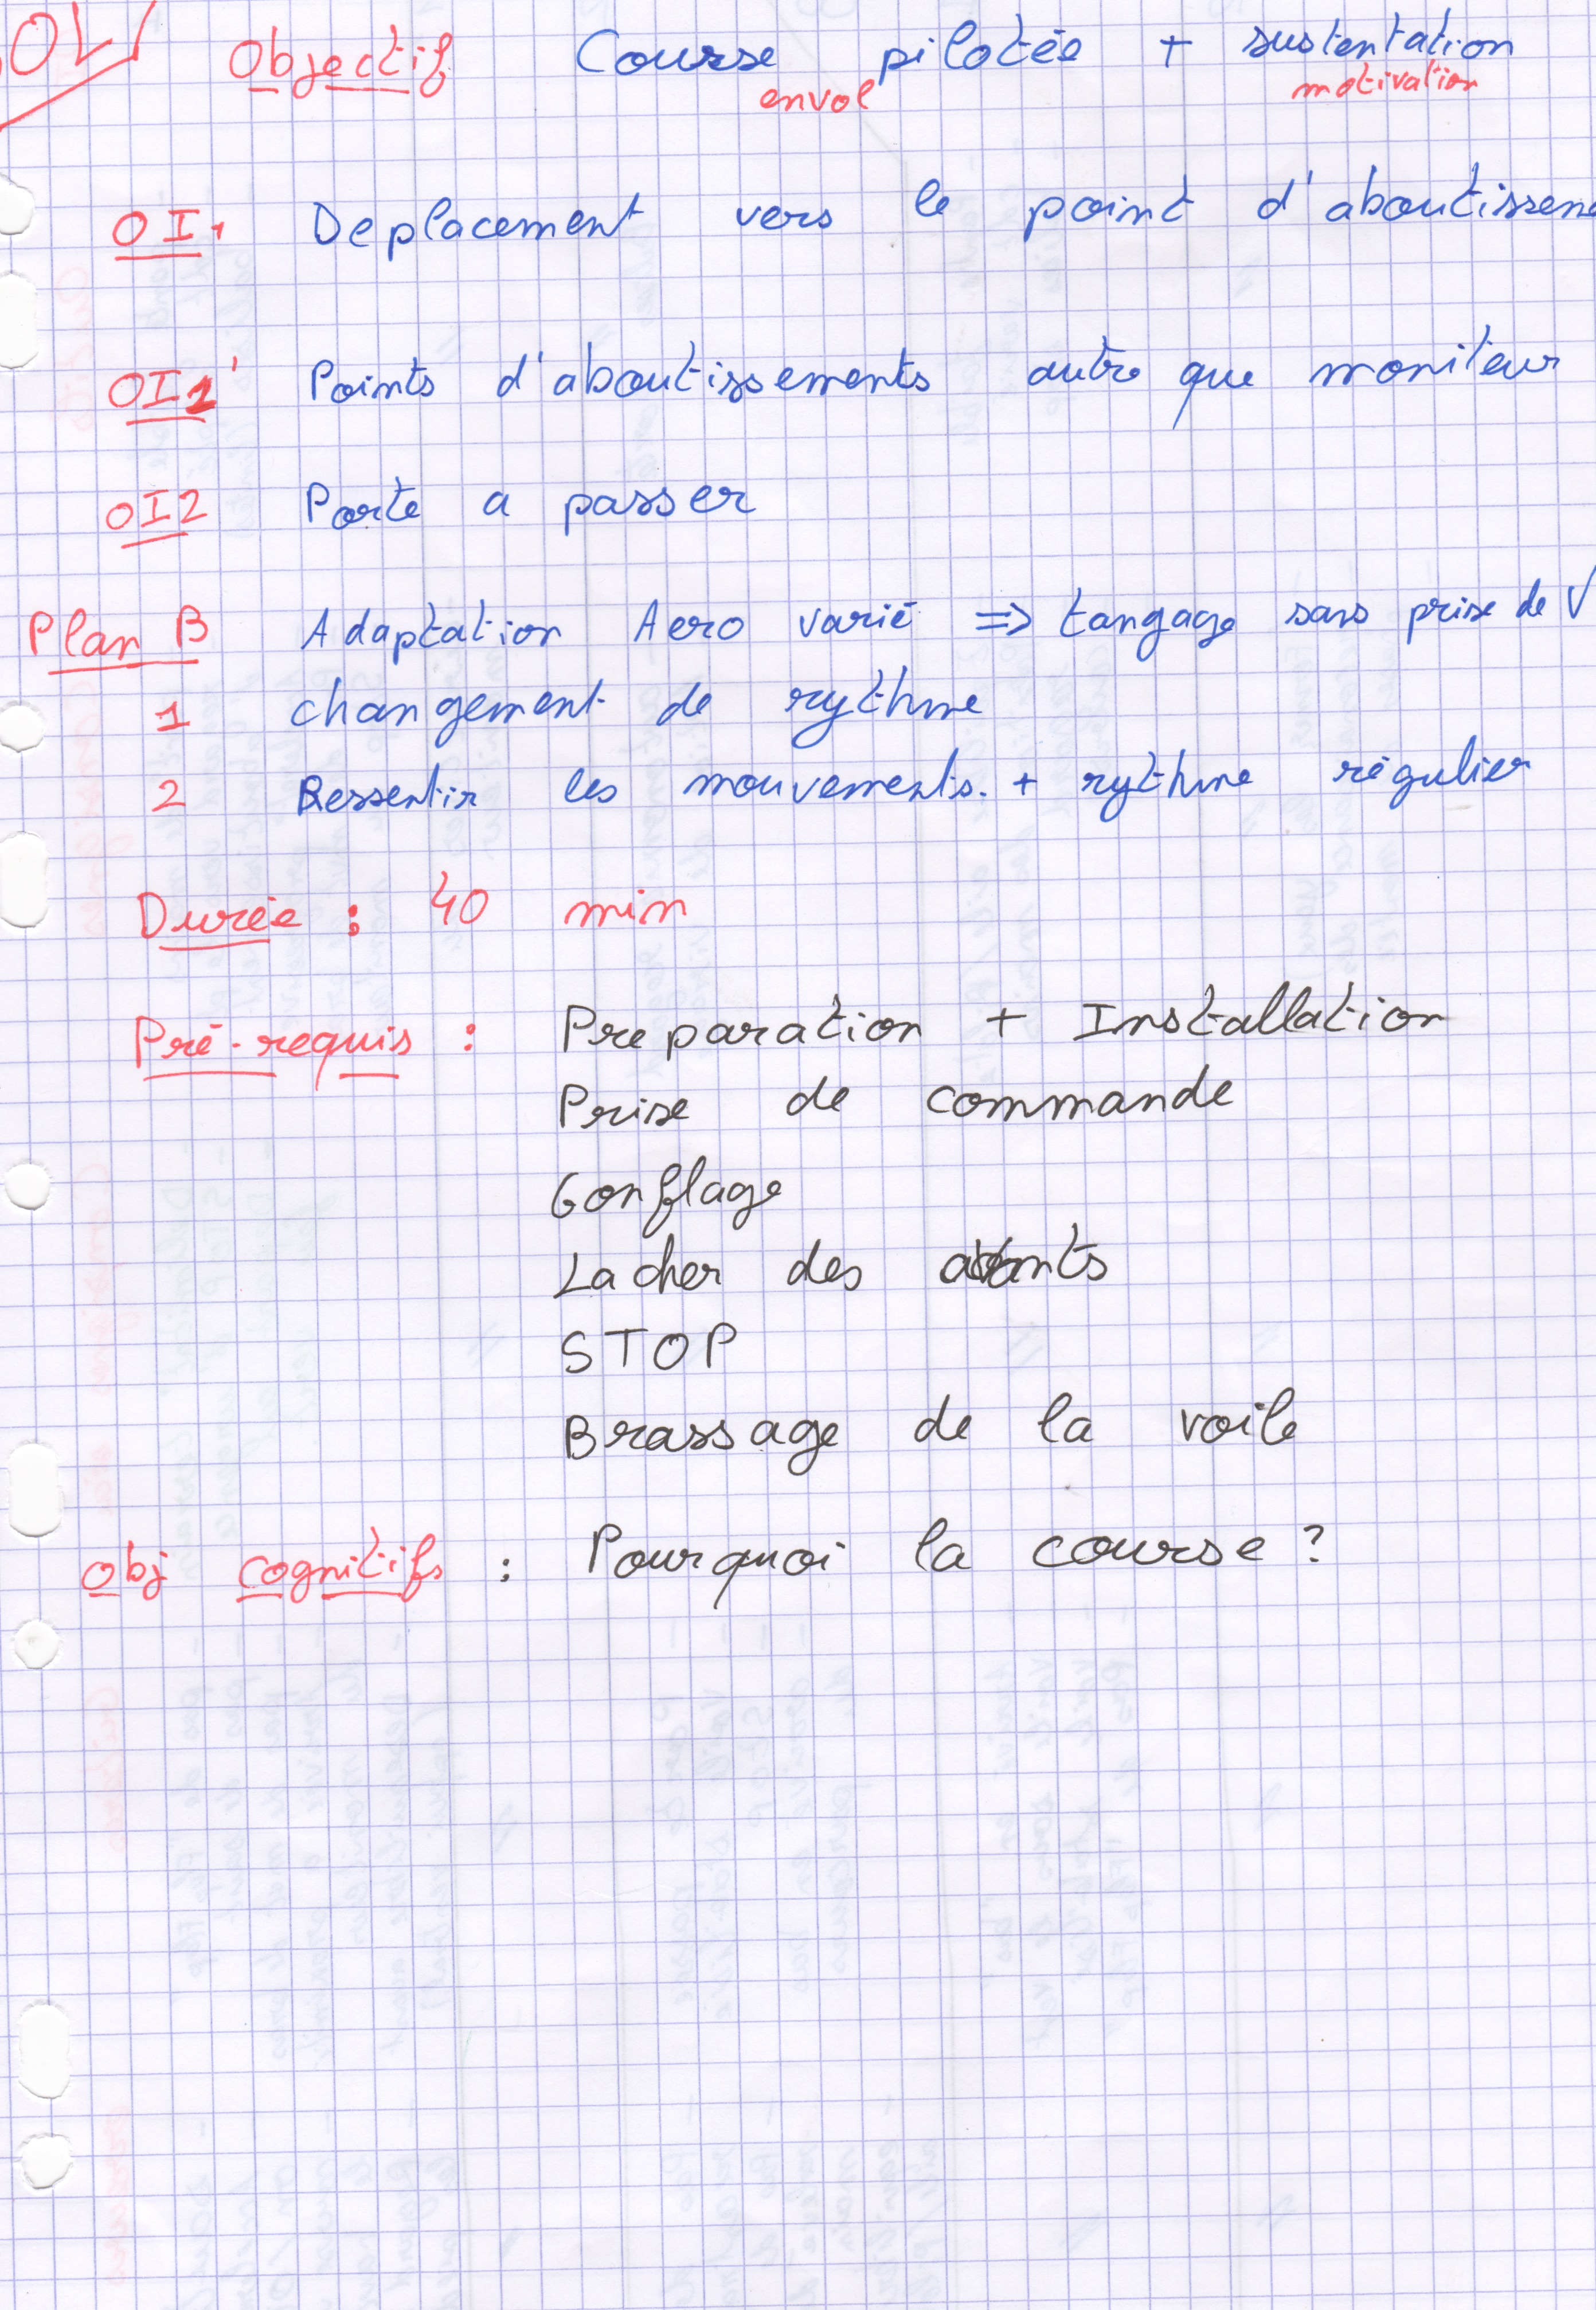 Objectif Course pilotée + sustentation
envol motivation
OI1 Deplacement vers le point d'aboutisseme
OI1' Points d'aboutissements autre que moniteur
OI2 Porte a passer
Plan B Adaptation Aero varié => tangage sans prise de V
1 changement de rythme
2 Ressentir les mouvements. + rythme régulier
Durée : 40 min
Pré-requis : Preparation + Installation
Prise de commande
Gonflage
Lacher des avants
STOP
Brassage de la voile
Obj cognitifs : Pourquoi la course ?